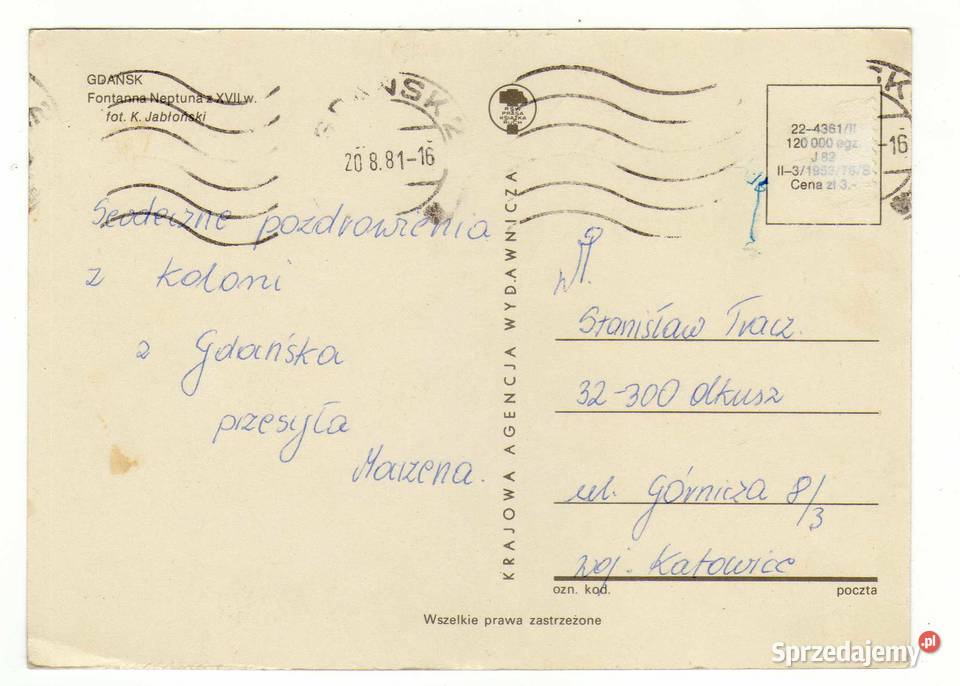 GDAŃSK
Fontanna Neptuna z XVII w.
fot. K. Jabłoński
GDAŃSK 2
20.8.81-16
RSW
PRASA
KSIĄŻKA
RUCH
SK
-16
22-4361/II
120 000 egz.
J 82
II-3/1953/76/S
Cena zł 3.-
Serdeczne pozdrowienia
z koloni
z Gdańska
przesyła
Marzena.
KRAJOWA AGENCJA WYDAWNICZA
Stanisław Tracz.
32-300 Olkusz
ul. Górnicza 8/3
woj. Katowice
ozn. kod.
poczta
Wszelkie prawa zastrzeżone
Sprzedajemy.pl